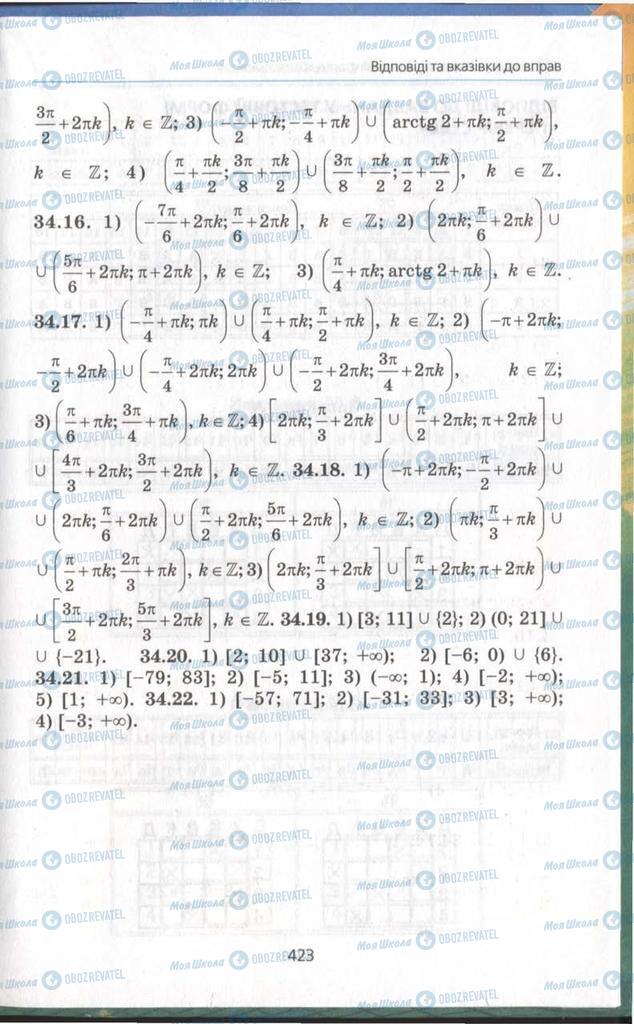 Відповіді та вказівки до вправ
3π/2 + 2πk), k ∈ ℤ; 3) (−π/2 + πk; −π/4 + πk) ∪ (arctg 2 + πk; π/2 + πk),
k ∈ ℤ; 4) (π/4 + πk/2; 3π/8 + πk/2) ∪ (3π/8 + πk/2; π/2 + πk/2), k ∈ ℤ.
34.16. 1) (−7π/6 + 2πk; π/6 + 2πk), k ∈ ℤ; 2) (2πk; π/6 + 2πk) ∪
∪ (5π/6 + 2πk; π + 2πk), k ∈ ℤ; 3) (π/4 + πk; arctg 2 + πk), k ∈ ℤ.
34.17. 1) (−π/4 + πk; πk) ∪ (π/4 + πk; π/2 + πk), k ∈ ℤ; 2) (−π + 2πk;
−π/2 + 2πk) ∪ (−π/4 + 2πk; 2πk) ∪ (−π/2 + 2πk; 3π/4 + 2πk), k ∈ ℤ;
3) (π/6 + πk; 3π/4 + πk), k ∈ ℤ; 4) [2πk; π/3 + 2πk] ∪ (π/2 + 2πk; π + 2πk] ∪
∪ [4π/3 + 2πk; 3π/2 + 2πk), k ∈ ℤ. 34.18. 1) (−π + 2πk; −π/2 + 2πk) ∪
∪ (2πk; π/6 + 2πk) ∪ (π/2 + 2πk; 5π/6 + 2πk), k ∈ ℤ; 2) (πk; π/3 + πk) ∪
∪ (π/2 + πk; 2π/3 + πk), k ∈ ℤ; 3) (2πk; π/3 + 2πk] ∪ [π/2 + 2πk; π + 2πk) ∪
∪ [3π/2 + 2πk; 5π/3 + 2πk], k ∈ ℤ. 34.19. 1) [3; 11] ∪ {2}; 2) (0; 21] ∪
∪ {−21}. 34.20. 1) [2; 10] ∪ [37; +∞); 2) [−6; 0) ∪ {6}.
34.21. 1) [−79; 83]; 2) [−5; 11]; 3) (−∞; 1); 4) [−2; +∞);
5) [1; +∞). 34.22. 1) [−57; 71]; 2) [−31; 33]; 3) [3; +∞);
4) [−3; +∞).
423